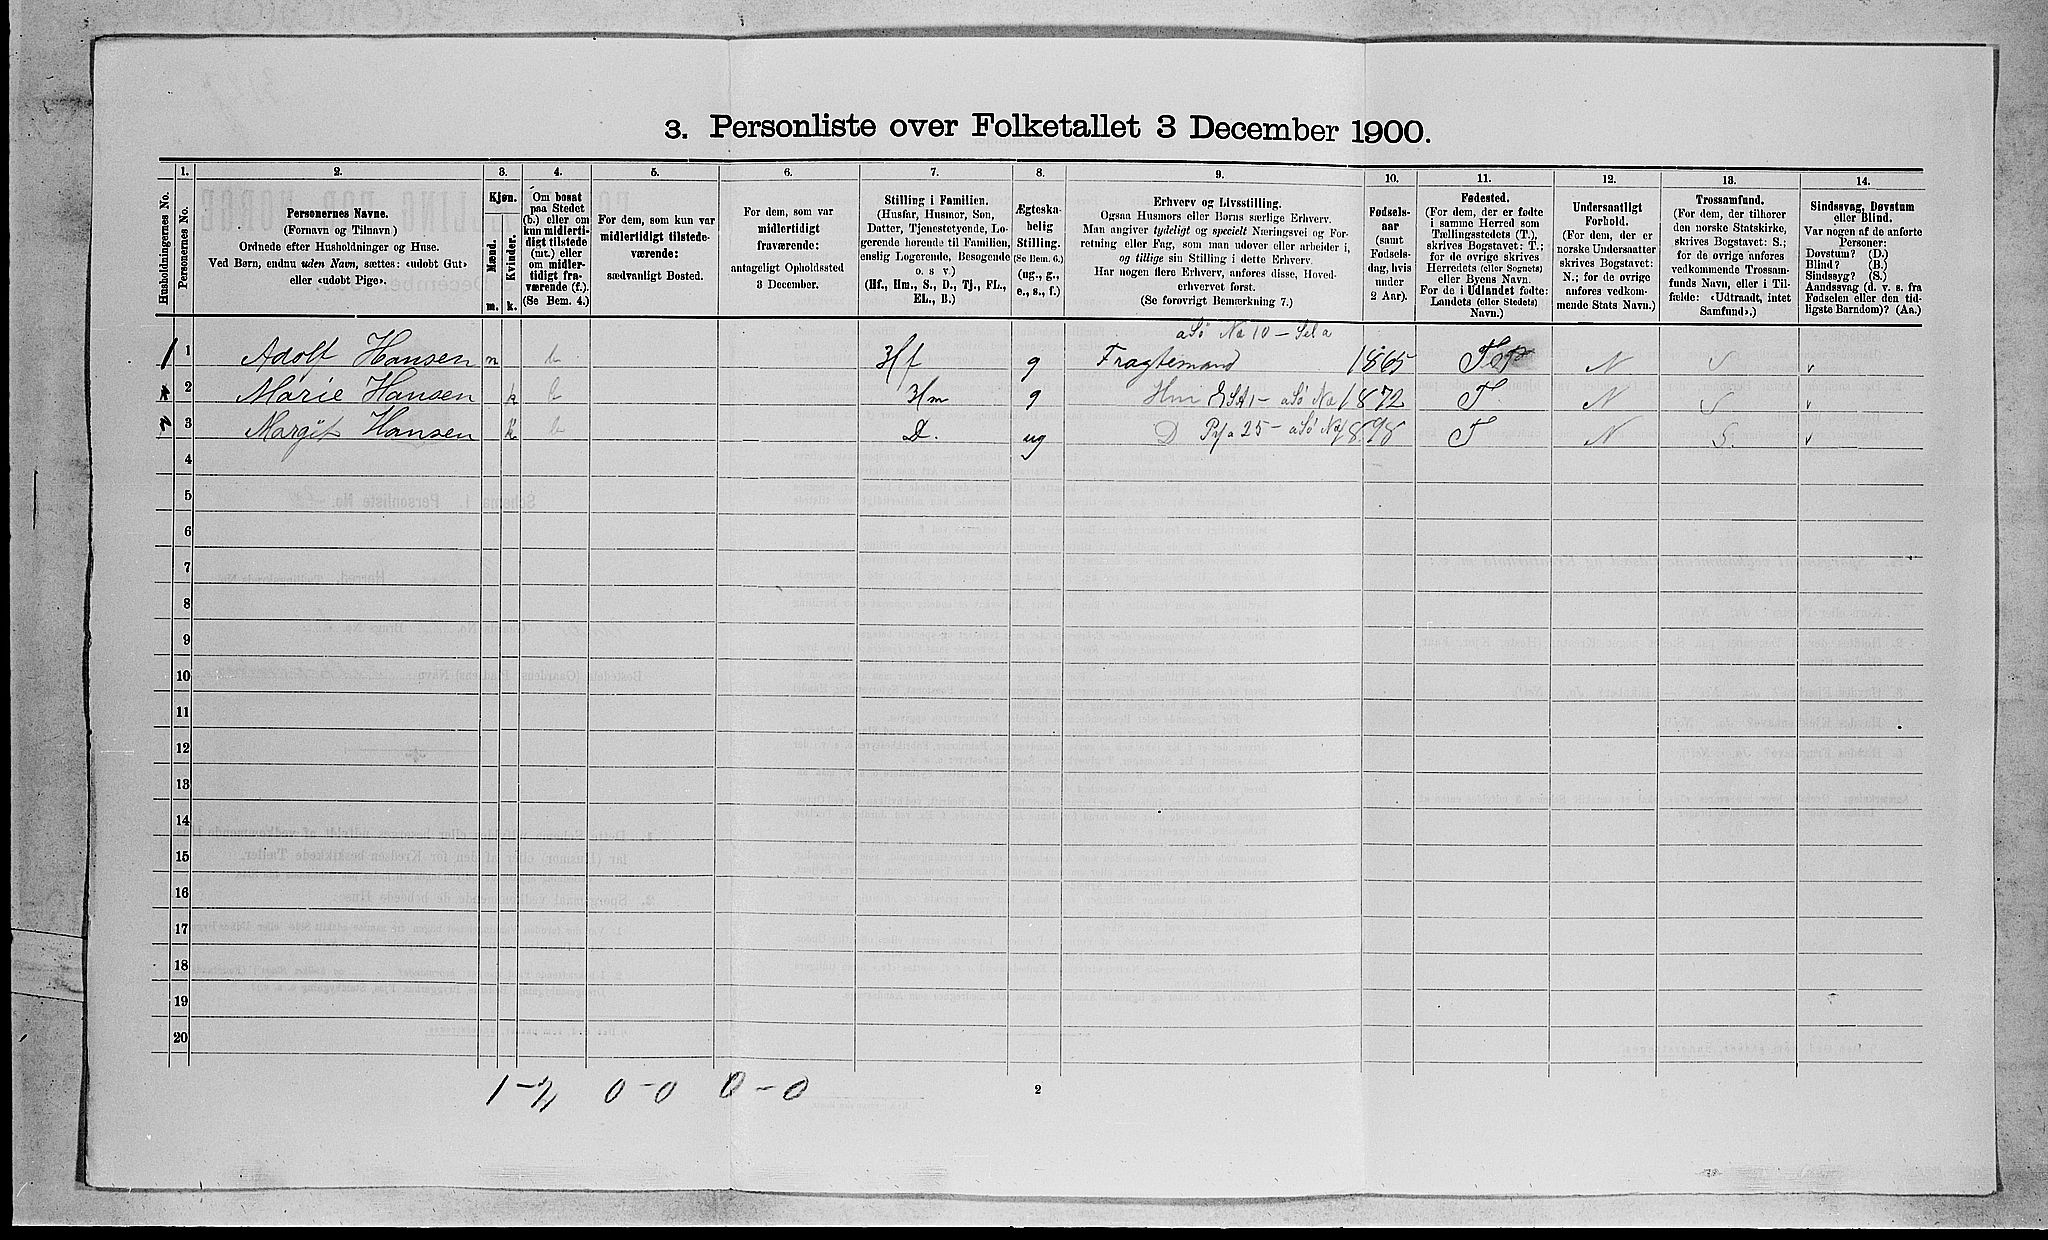 3. Personliste over Folketallet 3 December 1900.
Husholdningernes No.
1.
Personernes No.
2.
Personernes Navne.
(Fornavn og Tilnavn.)
Ordnede efter Husholdninger og Huse.
Ved Børn, endnu uden Navn, sættes: «udøbt Gut»
eller «udøbt Pige».
3.
Kjøn.
Mænd.
Kvinder.
m.
k.
4.
Om bosat
paa Stedet
(b.) eller om
kun midlerti-
digt tilstede
(mt.) eller
om midler-
tidigt fra-
værende (f.).
(Se Bem. 4.)
5.
For dem, som kun var
midlertidigt tilstede-
værende:
sædvanligt Bosted.
6.
For dem, som var
midlertidigt
fraværende:
antageligt Opholdssted
3 December.
7.
Stilling i Familien.
(Husfar, Husmor, Søn,
Datter, Tjenestetyende, Lo-
gerende hørende til Familien,
enslig Logerende, Besøgende
o. s. v.)
(Hf., Hm., S., D., Tj., FL.,
EL., B.)
8.
Ægteska-
belig
Stilling.
(Se Bem. 6.)
(ug., g.,
e., s., f.)
9.
Erhverv og Livsstilling.
Ogsaa Husmors eller Børns særlige Erhverv.
Man angiver tydeligt og specielt Næringsvei og For-
retning eller Fag, som man udøver eller arbeider i,
og tillige sin Stilling i dette Erhverv.
Har nogen flere Erhverv, anføres disse, Hoved-
erhvervet først.
(Se forøvrigt Bemærkning 7.)
10.
Fødsels-
aar
(samt
Fødsels-
dag, hvis
under
2 Aar).
11.
Fødested.
(For dem, der er fødte
i samme Herred som
Tællingsstedets (T.),
skrives Bogstavet: T.;
for de øvrige skrives
Herredets (eller Sognets)
eller Byens Navn.
For de i Udlandet fødte:
Landets (eller Stedets)
Navn.)
12.
Undersaatligt
Forhold.
(For dem, der er
norske Undersaatter
skrives Bogstavet:
N.; for de øvrige
anføres vedkom-
mende Stats Navn.)
13.
Trossamfund.
(For dem, der tilhører
den norske Statskirke,
skrives Bogstavet: S.;
for de øvrige anføres
vedkommende Trossam-
funds Navn, eller i Til-
fælde: «Udtraadt, intet
Samfund».)
14.
Sindssvag, Døvstum
eller Blind.
Var nogen af de anførte
Personer:
Døvstum? (D.)
Blind? (B.)
Sindssyg? (S.)
Aandssvag (d. v. s. fra
Fødselen eller den tid-
ligste Barndom)? (Aa.)
1 1 Adolf Hansen m b Hf g Fragtemand 1865 T N S
2 Marie Hansen k b Hm g Hm 1872 T N S
3 Margit Hansen k b D. ug D 1898 T N S.
4
5
6
7
8
9
10
11
12
13
14
15
16
17
18
19
20
1-2 0-0 0-0
2